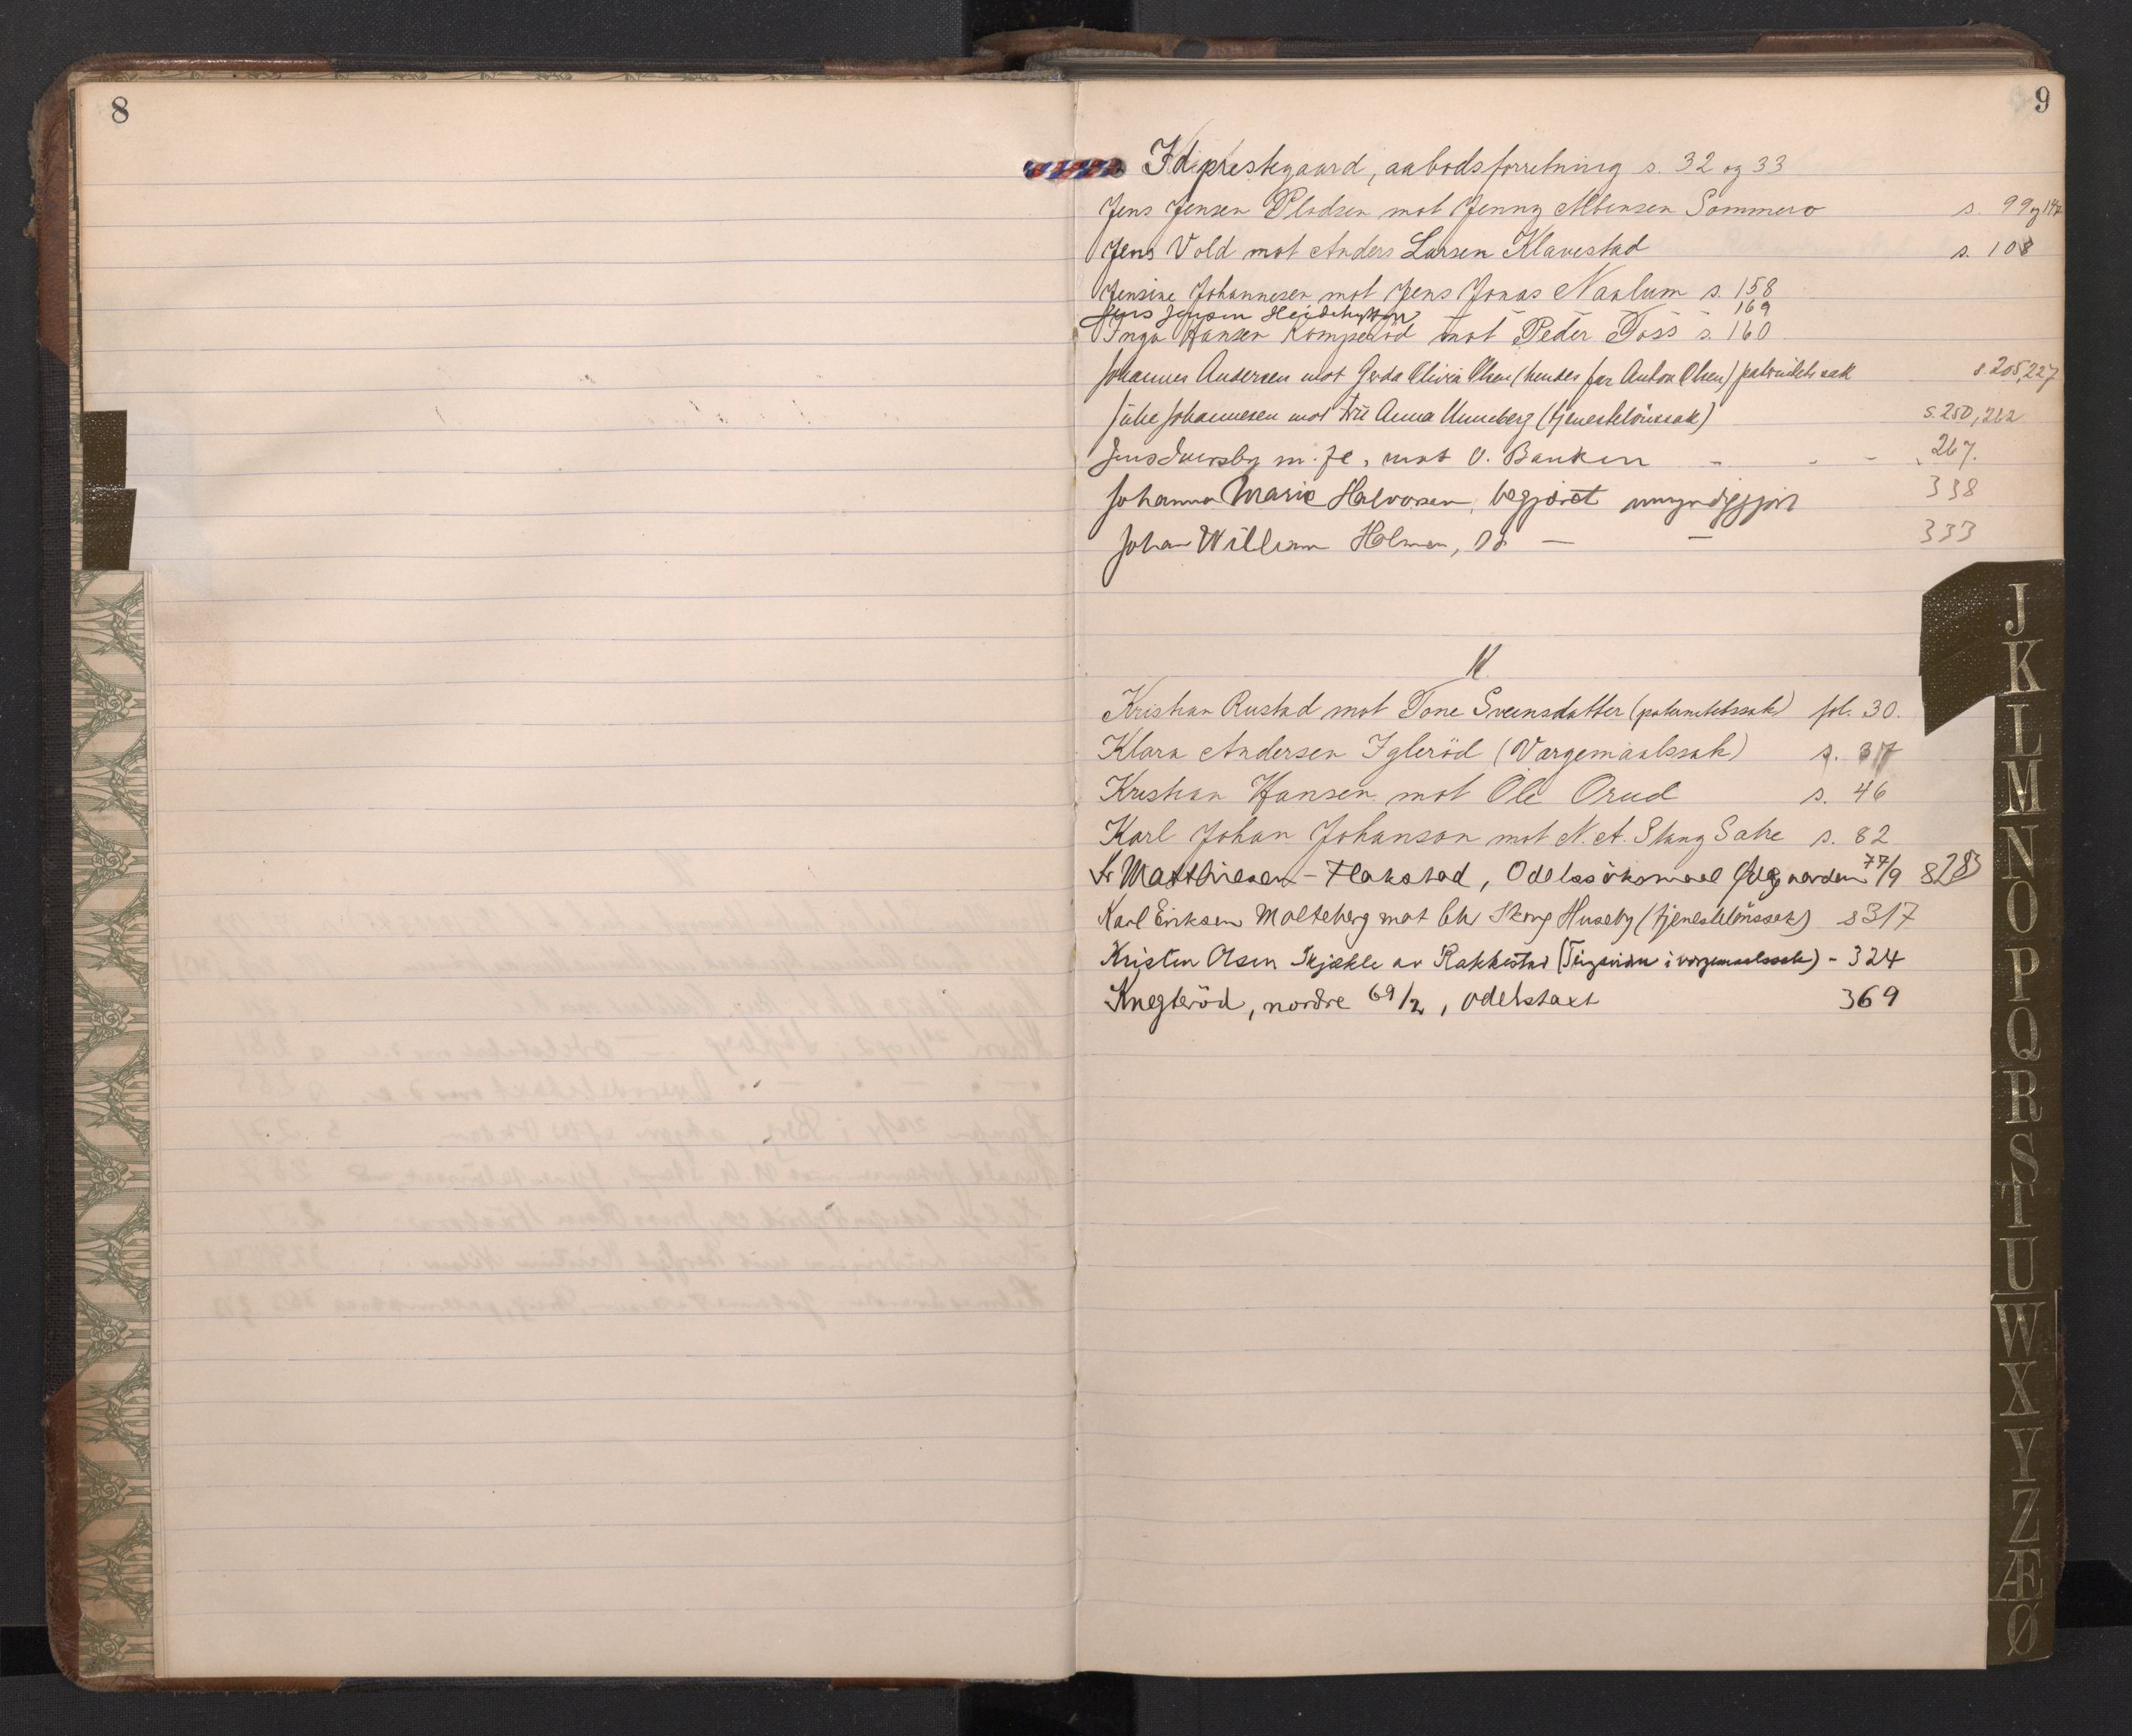 8
9
Id prestegaard, aabodsforretning s. 32 og 33
Jens Jensen Plodsen mot Jenny Albensen Sommero s. 99 og 147
Jens Vold mot Anders Larsen Klavestad s. 108
Jensine Johannesen mot Jens Jonas Naalum s. 158
Jens Jensen - - - - 169
Inga Hansen Komperöd mot Peder Foss s. 160
Johannes Andersen mot Gerda Olivia Olsen (hendes far Anton Olsen) paternitetssak s. 205, 227
Julie Johannesen mot frk Anna Unneberg (tjenestelönssak) s. 250, 262
Jens Iversby m. fl., mot O. Banken - - - 267.
Johanna Marie Halvorsen, begjæret umyndiggjort 338
Johan William Holmen, Do — — 333
K.
Kristian Rustad mot Tone Sveinsdatter (paternitetssak) fol. 30.
Klara Andersen Igleröd (Værgemaalssak) s. 37
Kristian Hansen mot Ole Orud s. 46
Karl Johan Johanson mot N. A. Stang Satre s. 82
Kr Matthiesen - Flakstad, Odelssöksmaal 77/9 s 283
Karl Eriksen Molteberg mot Chr Skog Huseby (tjenestelönssak) s 317
Kristen Olsen Skjækle av Rakkestad (Tingsvidne i værgemaalssak) - 324
Knegteröd, nordre 69/2, odelstaxt 369
J
K
L
M
N
O
P
Q
R
S
T
U
W
X
Y
Z
Æ
Ø